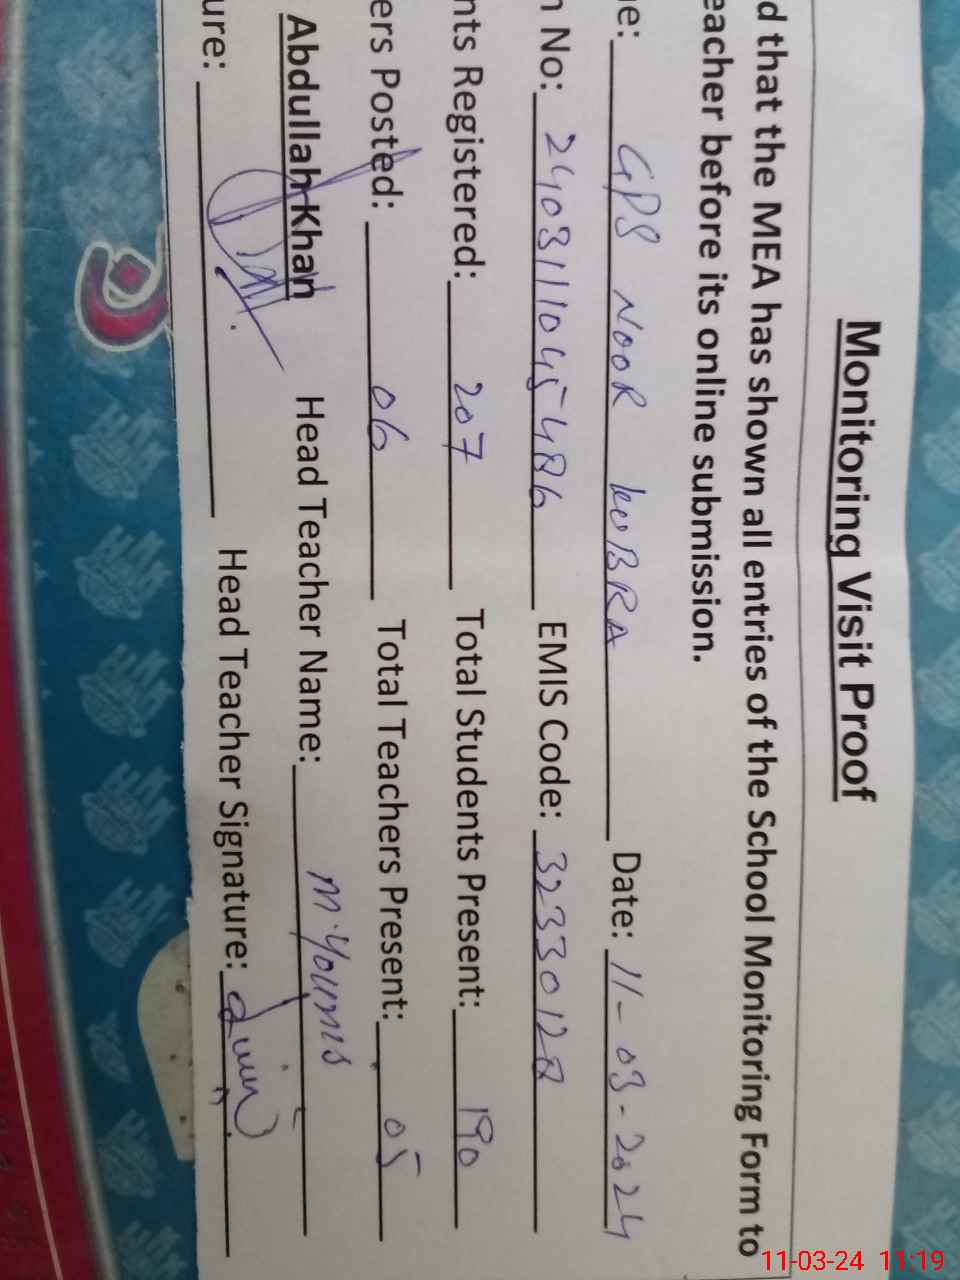 Monitoring Visit Proof
d that the MEA has shown all entries of the School Monitoring Form to
eacher before its online submission.
ne: GPS NOOR KOBRA Date: 11-03-2024
n No: 240311045486 EMIS Code: 32330128
nts Registered: 207 Total Students Present: 190
ers Posted: 06 Total Teachers Present: 05
Abdullah Khan Head Teacher Name: M. Younis
ure: Head Teacher Signature:
11-03-24 11:19